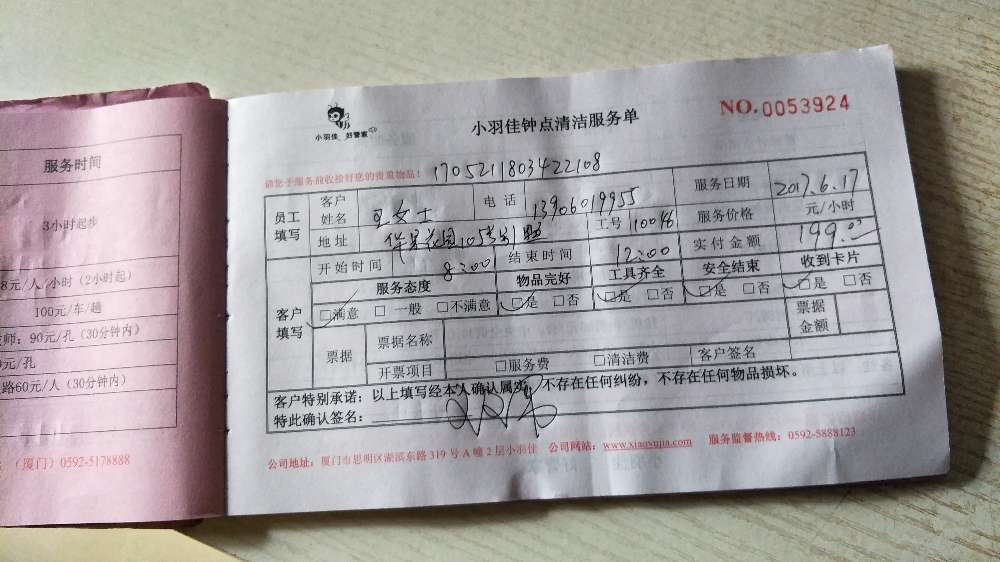 服务时间
3小时起步
8元/人/小时（2小时起）
100元/车/趟
师：90元/孔（30分钟内）
元/孔
路60元/人（30分钟内）
：（厦门）0592-5178888
小羽佳 好管家
小羽佳钟点清洁服务单
NO.0053924
请您于服务前收拾好您的贵重物品！ 1705211803422108
员工填写 客户姓名 王女士 电话 13906019955 服务日期 2017.6.17
地址 工号 10046 服务价格 元/小时
开始时间 8:00 结束时间 12:00 实付金额 199.00
客户填写 服务态度 物品完好 工具齐全 安全结束 收到卡片
□满意 □一般 □不满意 □是 □否 □是 □否 □是 □否 □是 □否
票据 票据名称 票据金额
开票项目 □服务费 □清洁费 客户签名
客户特别承诺：以上填写经本人确认属实，不存在任何纠纷，不存在任何物品损坏。
特此确认签名：
公司地址：厦门市思明区湖滨东路319号A幢2层小羽佳 公司网站：www.xiaoyujia.com 服务监督热线：0592-5888123